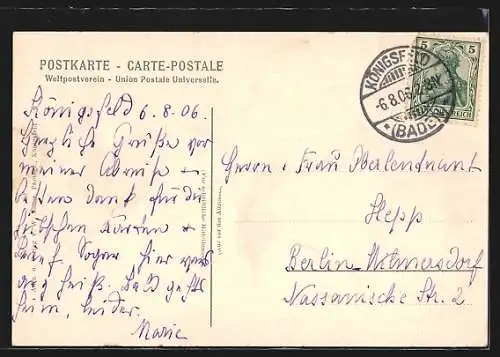 POSTKARTE - CARTE-POSTALE
Weltpostverein - Union Postale Universelle.
Königsfeld 6.8.06.
Herzliche Grüße vor
meiner Abreise +
besten Dank für die
hübschen Karten +
Brief. Sogar hier war's
heiß. Bald geht's
heim, leider.
Marie
KÖNIGSFELD
-6.8.06.
* (BADEN)
5 5
REICH
Herrn + Frau Oberleutnant
Hepp
Berlin-Wilmersdorf
Nassauische Str. 2